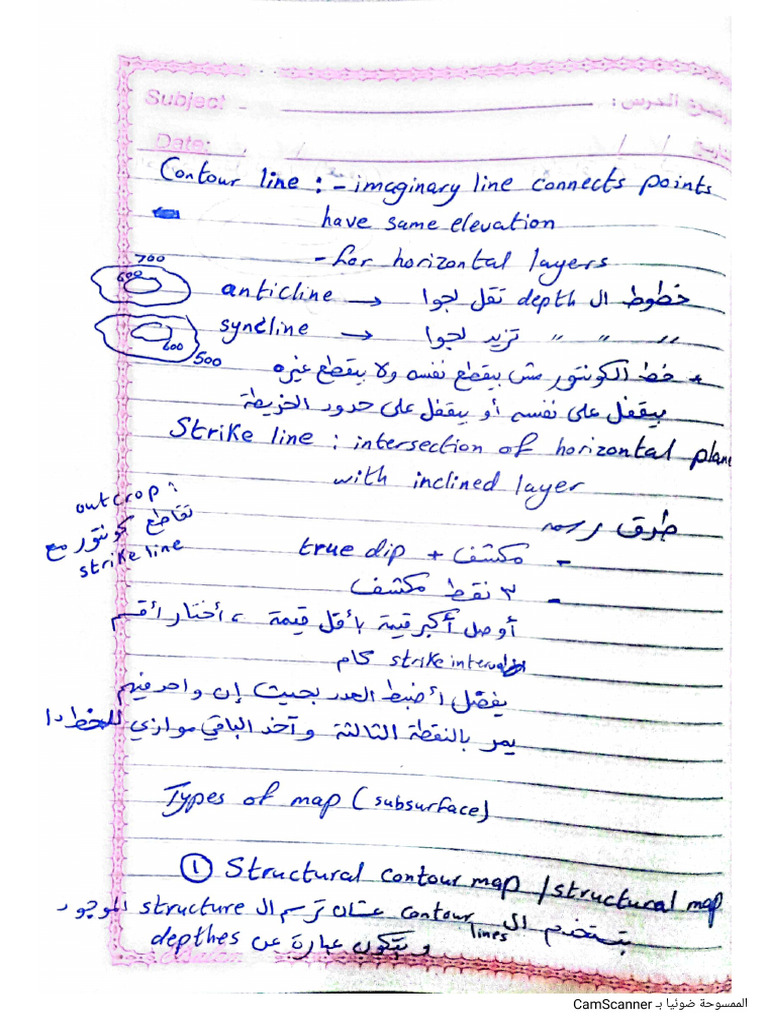 Subject - موضوع الدرس :
Date: / / التاريخ
Contour line : - imaginary line connects points
have same elevation
- for horizontal layers
700
600 anticline → خطوط ال depth تقل لجوا
syncline → 〃 〃 〃 تزيد لجوا
600
500
* خط الكونتور مش بيقطع نفسه ولا بيقطع غيره
بيقفل على نفسه أو بيقفل على حدود الخريطة
Strike line : intersection of horizontal plane
with inclined layer
outcrop :
تقاطع كونتور مع
strike line
طرق رسمه
- مكشف + true dip
- ٣ نقط مكشف
أوصل أكبر قيمة بأقل قيمة ، أختار أقسم
strike interval كام
يفضل أضبط العدد بحيث إن واحد فيهم
يمر بالنقطة التالتة وآخد الباقي موازي للخط دا
Types of map (subsurface)
① Structural contour map / structural map
بتستخدم ال contour lines عشان ترسم ال structure الموجود
وبتكون عبارة عن depthes
الممسوحة ضوئيا بـ CamScanner